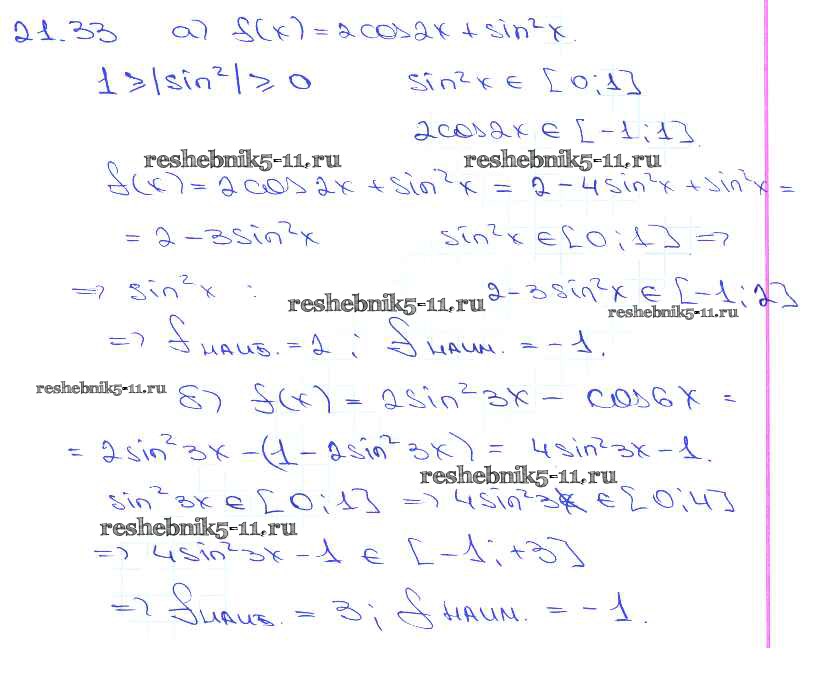 21.33 а) f(x) = 2cos2x + sin²x.
1 ≥ |sin²| ≥ 0 sin²x ∈ [0;1]
2cos2x ∈ [-1;1].
reshebnik5-11.ru reshebnik5-11.ru
f(x) = 2cos2x + sin²x = 2 - 4sin²x + sin²x =
= 2 - 3sin²x sin²x ∈ [0;1] =>
=> sin²x : 2 - 3sin²x ∈ [-1;2]
reshebnik5-11.ru
reshebnik5-11.ru
=> fнаиб. = 2; fнаим. = -1.
reshebnik5-11.ru б) f(x) = 2sin²3x - cos6x =
= 2sin²3x - (1 - 2sin²3x) = 4sin²3x - 1.
reshebnik5-11.ru
sin²3x ∈ [0;1] => 4sin²3x ∈ [0;4]
reshebnik5-11.ru
=> 4sin²3x - 1 ∈ [-1;+3]
=> fнаиб. = 3; fнаим. = -1.